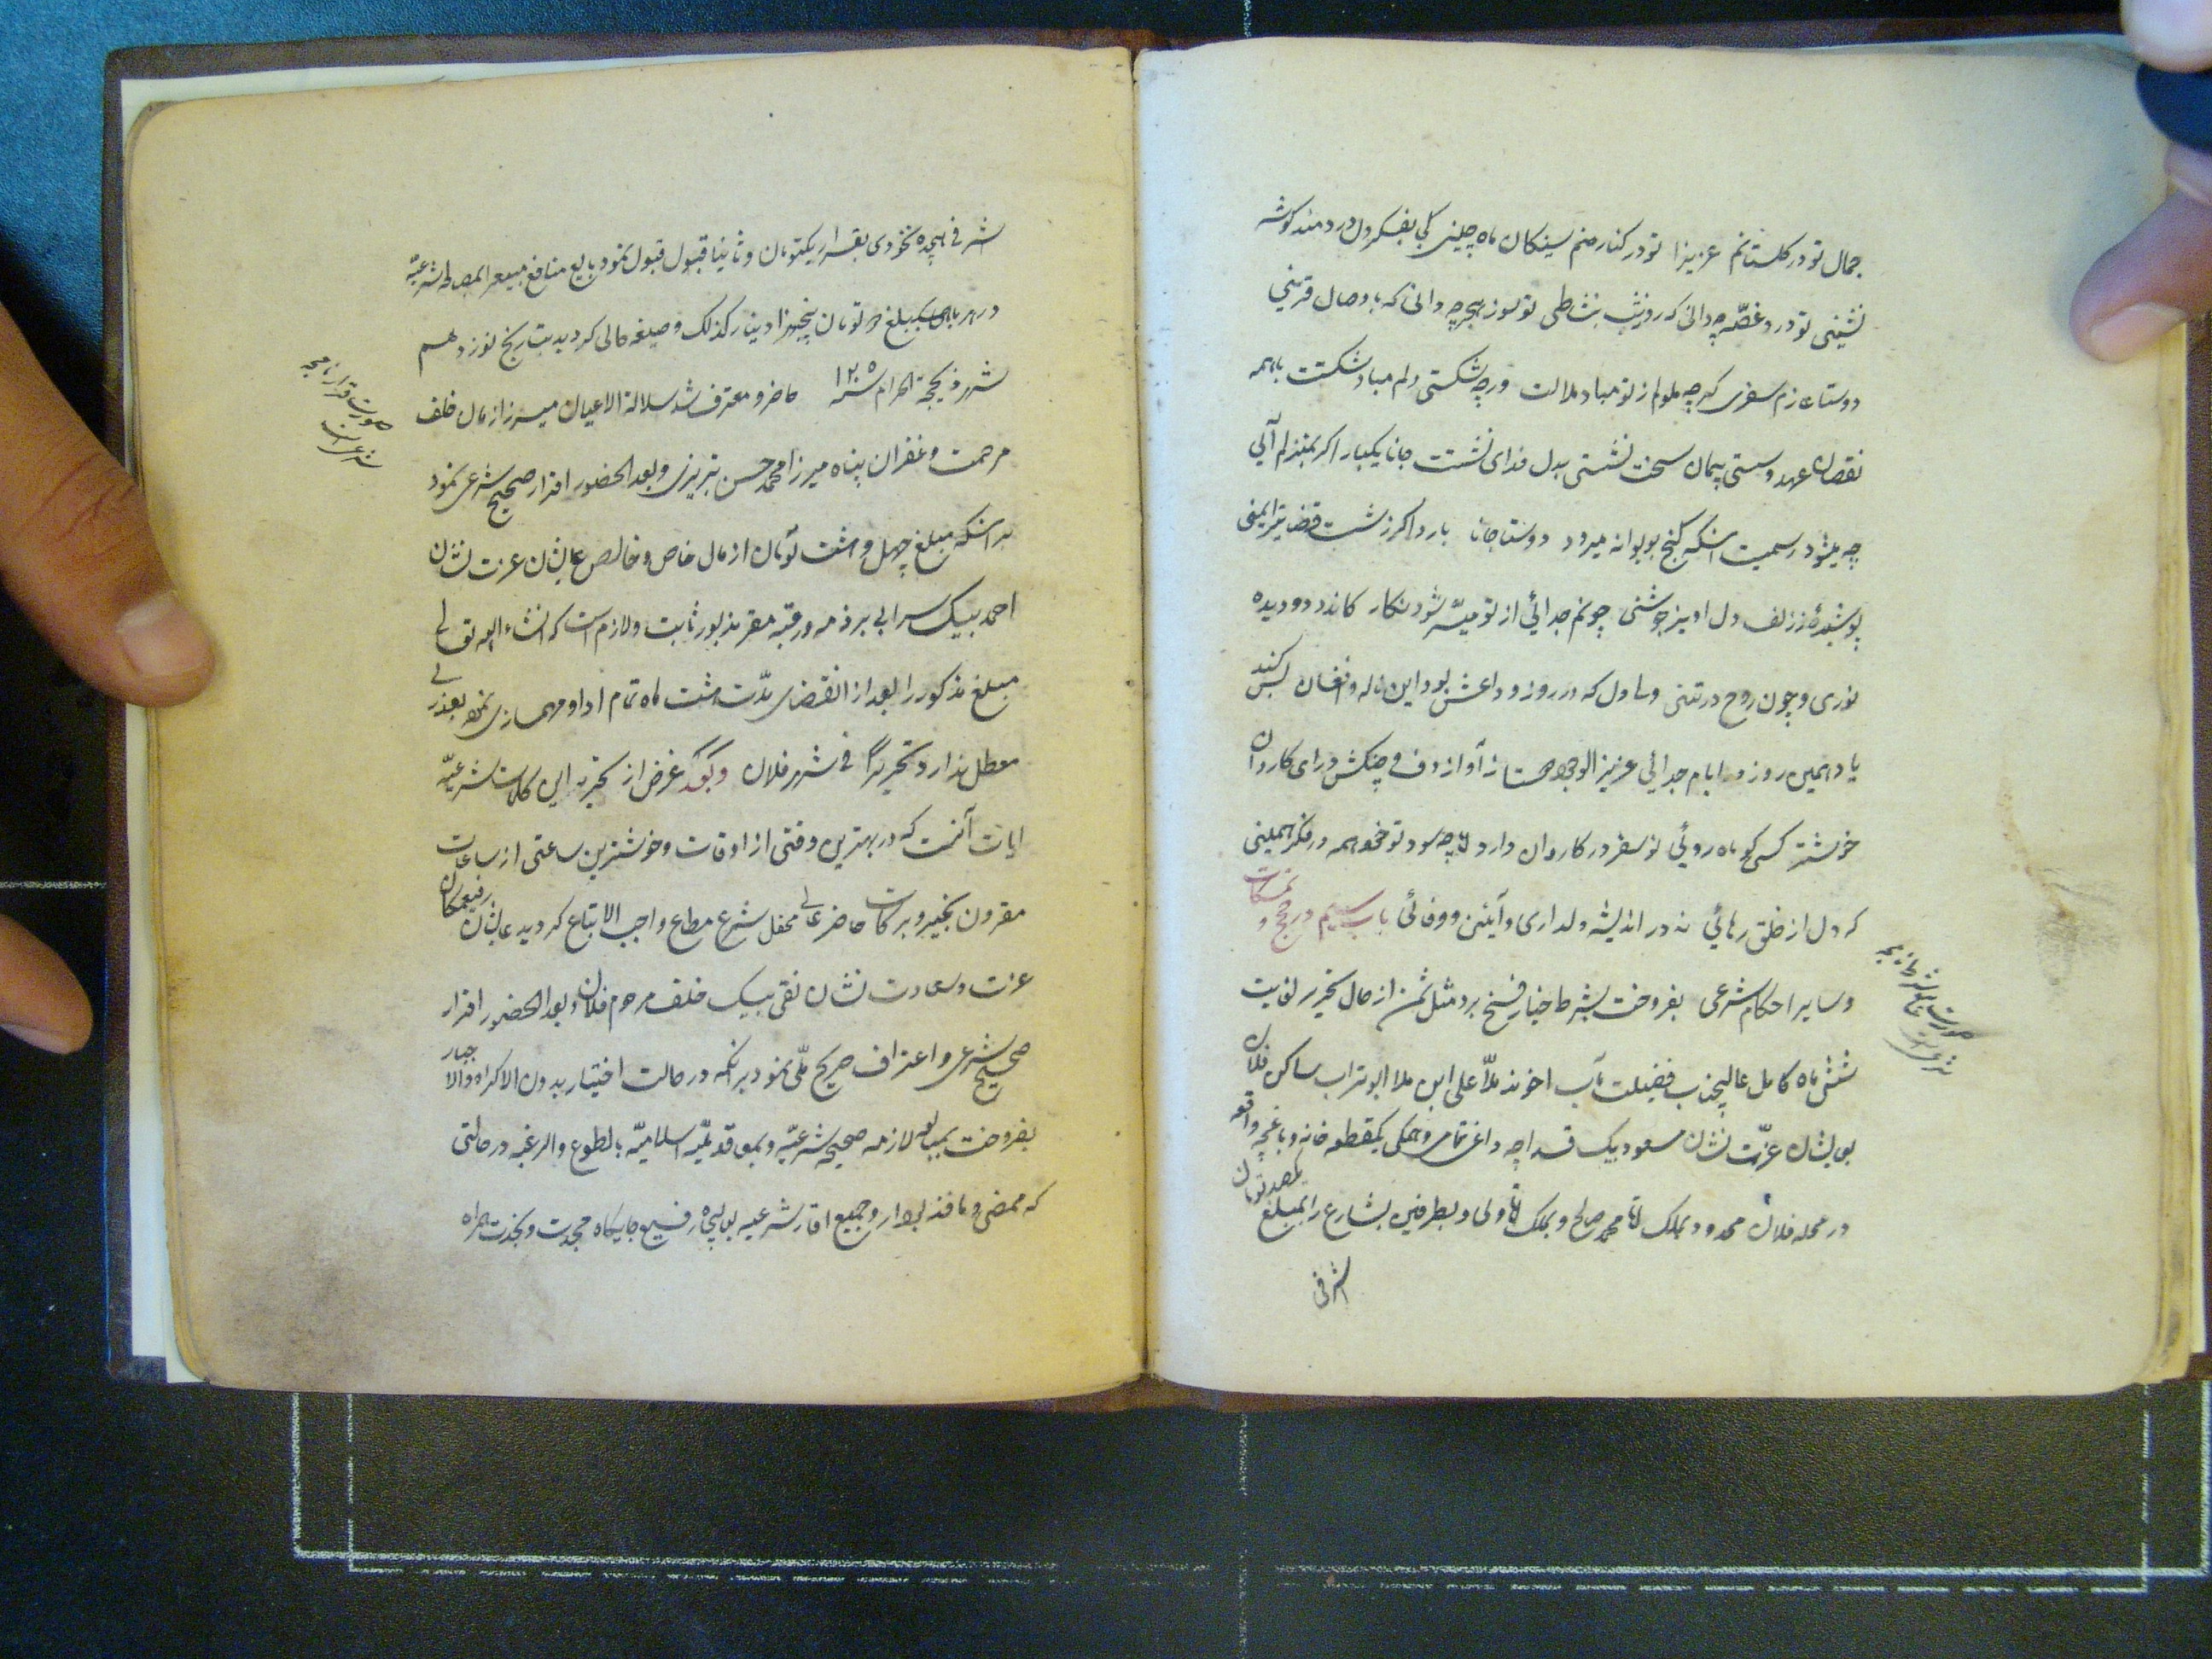 جمال تو در گلستانم عزیزا تو در کنار منم سینکان ماه چینی کی بفکر دل دردمند گوشه
نشینی تو درد و غصّه چه دانی که روز و شب بنشاطی تو سوز هجر چه دانی که با وصال قرینی
دوستا عازم سفری گرچه ملولم از تو مبادملالت ورچه شکستی دلم مباد شکستت باهمه
نقصان عهد و سستی پیمان سخت نشستی بدل فدای نشستت جانا یکبار اگر بمنزلم آئی
چه میشود رسمیست اینکه گنج بویرانه میرود دوستا جانا بارد اگر زشست قضا تیر ایمنی
پوشیدهٔ ز زلف دل اویز جوشنی چونم جدائی از تو میسّر شود نگار کاندر دو دیده
نوری و چون روح در تنی ولی اول که در روز وداعش بود این ناله و افغان بس کنید
یا دهمین روز و ایام جدائی عزیز الوجودا مستانه آواز دف و چنگش ورای کاروان
خوشتر کسی کو ماه روئی نو سفر در کاروان دارد لا چه سود تو خود همه در فکر همینی
که دل از خلق رهائی نه در اندیشه ولداری و آیئن و وفائی باب سیم در حجج و تمسکات
وسایر احکام شرعی بفروخت بشرط خیار فسخ برد مثل ثمن از حال تحریر لغایت
صورت بیع شرط نامچه شرعی است
شش ماه کامل عالیجناب فضیلت مآب اخوند ملّا علی ابن ملا ابوتراب ساکن فلان
بعالیشان عزّت نشان مسعود بیک قراچه داغی تمامی و همگی یکقطعه خانه و باغچه واقعه
در محله فلان محدود بملک لا محمد صالح و بملک لا ولی و بطرفین بشارع را بمبلغ یکصد تومان
اشرفی
شرفی هیجده نخودی بقرار یکتومان و ثانیا قبول قبول نمود بایع منافع مبیعه را بمصالحه شرعیّه
در هر ماهی بمبلغ دو تومان پنجهزار دینار کذلک وصیغه حالی گردید بتاریخ نوزدهم
شهر ذیحجة الحرام سنه ۱۲۰۵ حاضر و معترف شد سلالة الاعیان میرزا زمان خلف
صورت قرارنامچه شرعی است
مرحمت و غفران پناه میرزا محمد حسن تبریزی و بعد الحضور اقرار صحیح شرعی نمود
بر اینکه مبلغ چهل و هشت تومان از مال خاص و خالص عالیشان عزت نشان
احمد بیک سرابی برذمه و رقبه مقر مذبور ثابت و لازم است که انشاء الله تعالی
مبلغ مذکور را بعد از انقضای مدّت هشت ماه تمام ادا و مهمسازی نموده بعذری
معطل ندارد تحریراً فی شهر فلان ودیگر غرض از تحریر این کلمات شرعیّه
ایات آنست که در بهترین وقتی از اوقات و خوشترین ساعتی از ساعات
مقرون بخیر و برکات حاضر عالی محفل شرع مطاع واجب الاتباع گردید عالیشان رفیعمکان
عزت و سعادت نشان نقی بیک خلف مرحوم فلان و بعد الحضور اقرار
صحیح شرعی و اعتراف صریح ملّی نمود بر انکه در حالت اختیار بدون الاکراه والاجبار
بفروخت بمبایعه لازمه صحیحه شرعیّه و بمعاقده ملّیّه اسلامیّه بالطوع والرغبه در حالتی
که ممضی و نافذ بود ار و جمیع اقاریر شرعیه بعالیجاه رفیع جایگاه مجدت و نجدت همراه